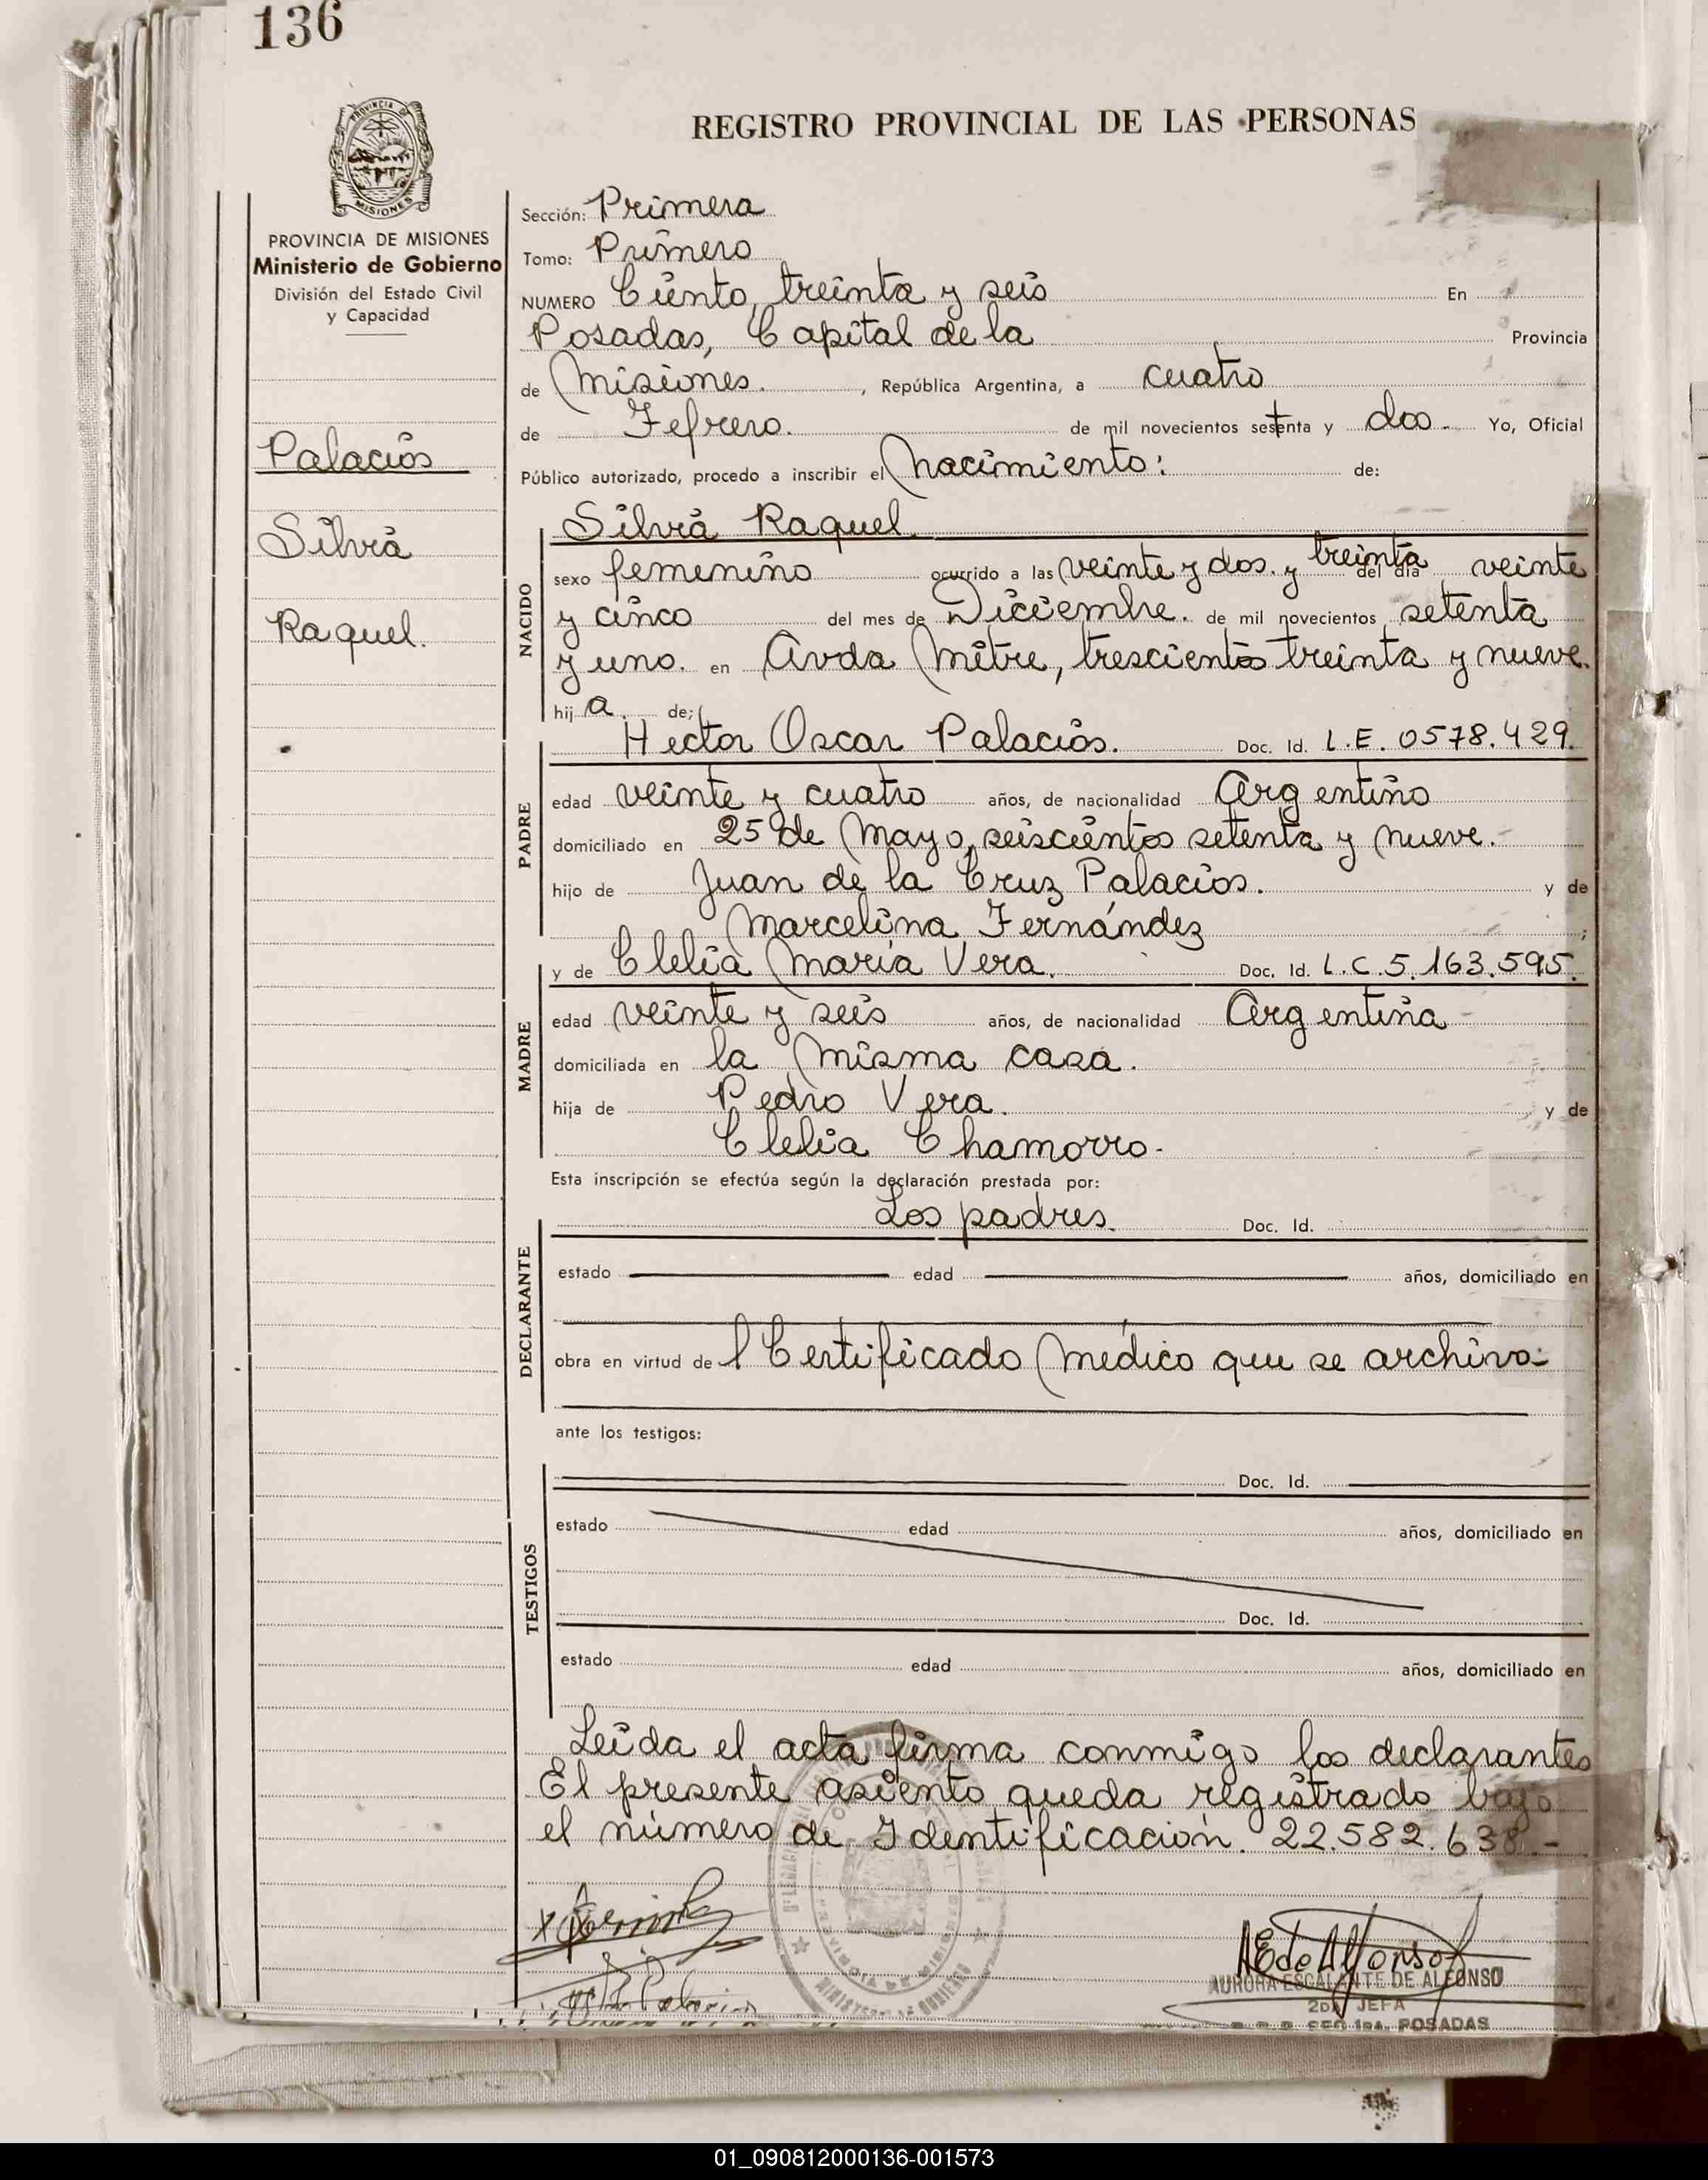 136
REGISTRO PROVINCIAL DE LAS PERSONAS
PROVINCIA DE MISIONES
Ministerio de Gobierno
División del Estado Civil
y Capacidad
Palacios
Silvia
Raquel.
Sección: Primera
Tomo: Primero
NUMERO Ciento, treinta y seis En
Posadas, Capital de la Provincia
de Misiones. , República Argentina, a cuatro
de Febrero. de mil novecientos setenta y dos. Yo, Oficial
Público autorizado, procedo a inscribir el Nacimiento: de:
NACIDO
Silvia Raquel
sexo femenino ocurrido a las veinte y dos. y treinta del día veinte
y cinco del mes de Diciembre. de mil novecientos setenta
y uno. en Avda Mitre, trescientos treinta y nueve.
hij a. de;
PADRE
Hector Oscar Palacios. Doc. Id. L.E. 0578.429.
edad veinte y cuatro años, de nacionalidad Argentino
domiciliado en 25 de Mayo, seiscientos setenta y nueve.-
hijo de Juan de la Cruz Palacios. y de
Marcelina Fernández ;
MADRE
y de Clelia María Vera. Doc. Id. L.C. 5.163.595.
edad veinte y seis años, de nacionalidad Argentina-
domiciliada en la misma casa.
hija de Pedro Vera. y de
Clelia Chamorro.-
Esta inscripción se efectúa según la declaración prestada por:
DECLARANTE
Los padres. Doc. Id.
estado edad años, domiciliado en
obra en virtud de l Certificado Médico que se archiva.-
ante los testigos:
TESTIGOS
Doc. Id.
estado edad años, domiciliado en
Doc. Id.
estado edad años, domiciliado en
Leida el acta firma conmigo los declarantes
El presente asiento queda registrado bajo
el número de Identificación. 22.582.638.-
AEdeAlfonso
AURORA ESCALANTE DE ALFONSO
2DA JEFA
POSADAS
01_090812000136-001573